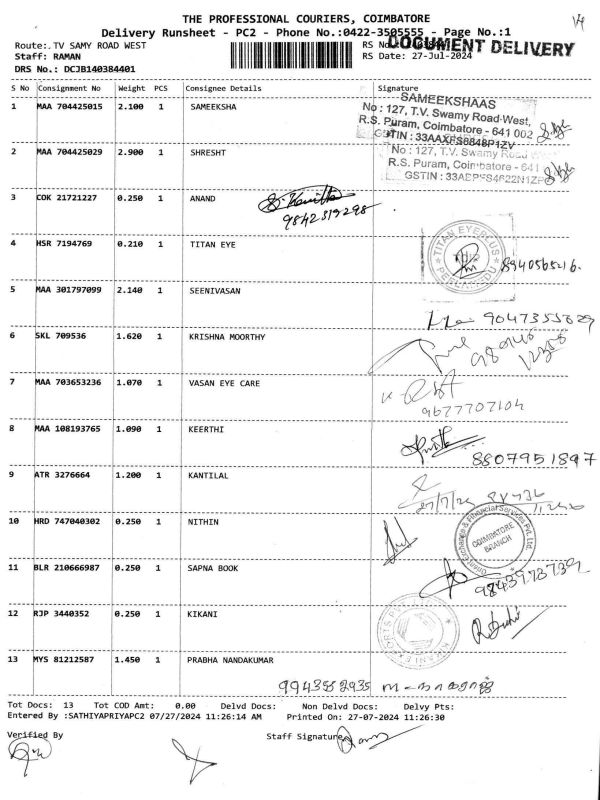 THE PROFESSIONAL COURIERS, COIMBATORE
Delivery Runsheet - PC2 - Phone No.:0422-3505555 - Page No.:1
DOCUMENT DELIVERY
Route:.TV SAMY ROAD WEST
RS No
Staff: RAMAN
RS Date: 27-Jul-2024
DRS No.: DCJB140384401
S No Consignment No Weight PCS Consignee Details Signature
1 MAA 704425015 2.100 1 SAMEEKSHA
SAMEEKSHAAS
No : 127, T.V. Swamy Road-West,
R.S. Puram, Coimbatore - 641 002
2 MAA 704425029 2.900 1 SHRESHT
No : 127, T.V. Swamy Road
R.S. Puram, Coimbatore - 641
3 COK 21721227 0.250 1 ANAND
9842319298
4 HSR 7194769 0.210 1 TITAN EYE
TITAN EYEPLUS
8940565216.
5 MAA 301797099 2.140 1 SEENIVASAN
9047355629
6 SKL 709536 1.620 1 KRISHNA MOORTHY
7 MAA 703653236 1.070 1 VASAN EYE CARE
9677707104
8 MAA 108193765 1.090 1 KEERTHI
8807951897
9 ATR 3276664 1.200 1 KANTILAL
27/7/24
10 HRD 747040302 0.250 1 NITHIN
COIMBATORE
BRANCH
11 BLR 210666987 0.250 1 SAPNA BOOK
9843973739
12 RJP 3440352 0.250 1 KIKANI
13 MYS 81212587 1.450 1 PRABHA NANDAKUMAR
9943552935
Tot Docs: 13 Tot COD Amt: 0.00 Delvd Docs: Non Delvd Docs: Delvy Pts:
Entered By :SATHIYAPRIYAPC2 07/27/2024 11:26:14 AM Printed On: 27-07-2024 11:26:30
Verified By
Staff Signature